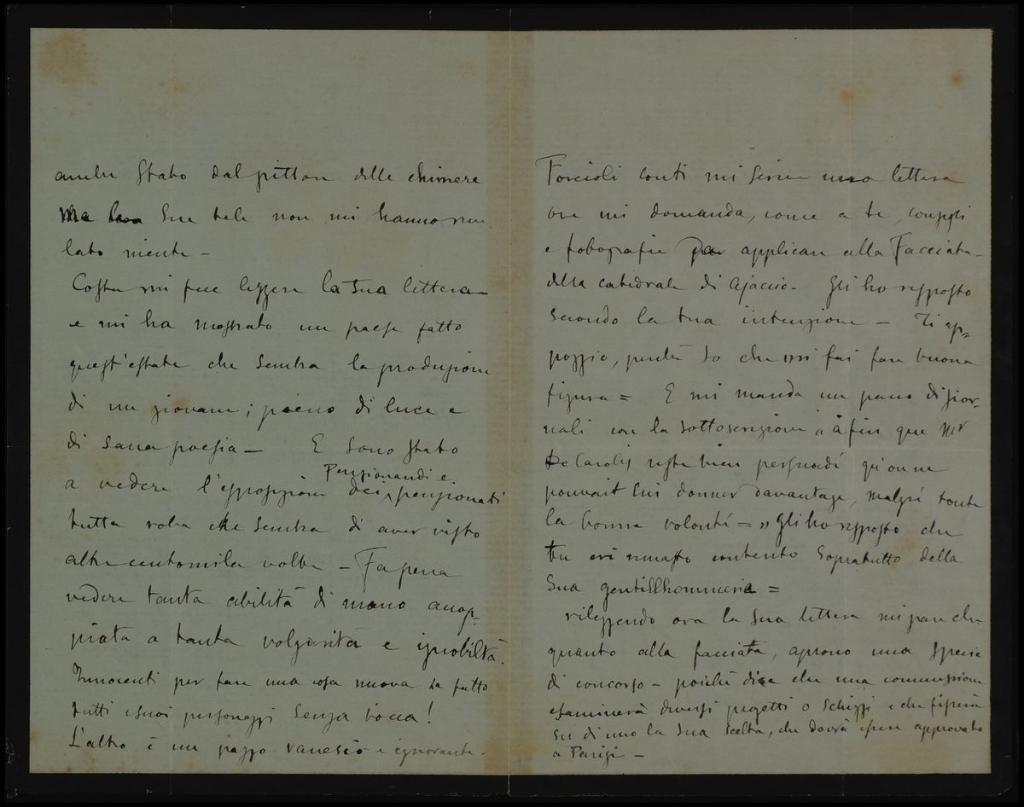 anche stato dal pittore delle chimere
ma le sue tele non mi hanno rive
lato niente —
Costa mi fece leggere la sua lettera
e mi ha mostrato un paese fatto
quest'estate che sembra la produzione
di un giovane; pieno di luce e
di sana poesia — E sono stato
a vedere l'esposizione dei Pensionandi e pensionati
tutta roba che sembra di aver visto
altre centomila volte — Fa pena
vedere tanta abilità di mano accop
piata a tanta volgarità e ignobiltà.
Innocenti per fare una cosa nuova ha fatto
tutti i suoi personaggi senza bocca!
L'altro è un pazzo vanesio e ignorante.
Forcioli Conti mi scrive una lettera
ove mi domanda, come a te, consigli
e fotografie per applicare alla Facciata
della catedrale di Ajaccio. Gli ho risposto
secondo la tua intenzione — Ti ap=
poggio, perché so che mi fai fare buona
figura = E mi manda un pacco di gior-
nali con la sottoscrizione „ à fin que Mr
De Carolis reste bien persuadé qu'on ne
pouvait lui donner davantage, malgré toute
la bonne volonté = „ Gli ho risposto che
tu eri rimasto contento sopratutto della
sua gentillhommerie =
rileggendo ora la sua lettera mi pare che
quanto alla facciata, aprono una specie
di concorso — poiché dice che una commissione
esaminerà diversi progetti o schizzi e che fisserà
su di uno la sua scelta, che dovrà essere approvato
a Parigi —